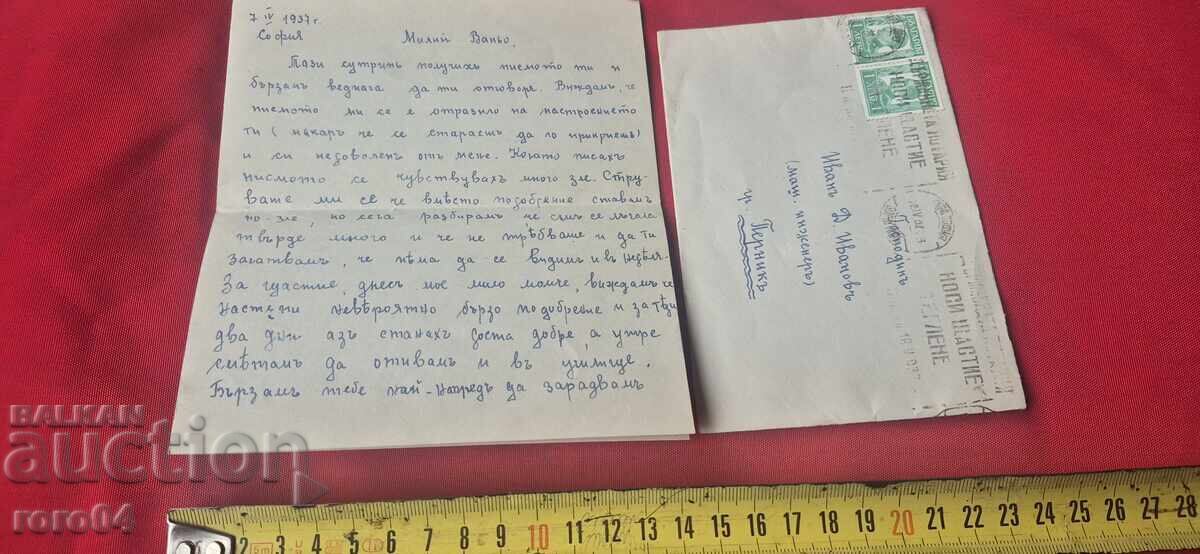 7 IV 1937 г.
София
Милий Ваньо,
Тази сутринь получихъ писмото ти и
бързамъ веднага да ти отговоря. Виждамъ, че
писмото ми се е отразило на настроението
ти (макаръ че се стараешъ да го прикриешъ)
и си недоволенъ отъ мене. Когато писахъ
писмото се чувствувахъ много зле. Стру-
ваше ми се че вмѣсто подобрение ставамъ
по-зле, но сега разбирамъ, че съмъ се лъгала
твърде много и че не трѣбваше и да ти
загатвамъ, че нѣма да се видимъ и въ недѣля.
За щастие, днесъ мое мило момче, виждамъ че
настѫпи невѣроятно бързо подобрение и за тѣзи
два дни азъ станахъ доста добре, а утре
смѣтамъ да отивамъ и въ училище.
Бързамъ тебе най-напредъ да зарадвамъ
Господинъ
Иванъ Д. Ивановъ
(маш. инженеръ)
гр. Перникъ
НОСИ ЩАСТИЕ
BALKAN
auction
roro04
2 3 4 5 6 7 8 9 10 11 12 13 14 15 16 17 18 19 20 21 22 23 24 25 26 27 28